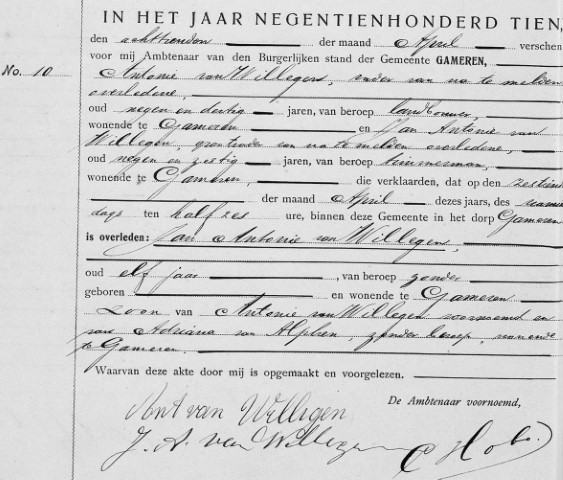 IN HET JAAR NEGENTIENHONDERD TIEN,
den achttienden der maand April verscheen
voor mij Ambtenaar van den Burgerlijken stand der Gemeente GAMEREN,
No. 10
Antonie van Willegen, vader van na te melden
overledene,
oud negen en dertig jaren, van beroep landbouwer,
wonende te Gameren en Jan Antonie van
Willegen, grootvader van na te melden overledene,
oud negen en zestig jaren, van beroep timmerman,
wonende te Gameren, die verklaarden, dat op den zestienden
der maand April dezes jaars, des namid
dags ten half zes ure, binnen deze Gemeente in het dorp Gameren
is overleden: Jan Antonie van Willegen,
oud elf jaar, van beroep zonder
geboren en wonende te Gameren
Zoon van Antonie van Willegen voornoemd en
van Adriana van Alphen, zonder beroep, wonende
te Gameren.
Waarvan deze akte door mij is opgemaakt en voorgelezen.
De Ambtenaar voornoemd,
Ant van Willigen
J. A. van Willigen
C Hobo